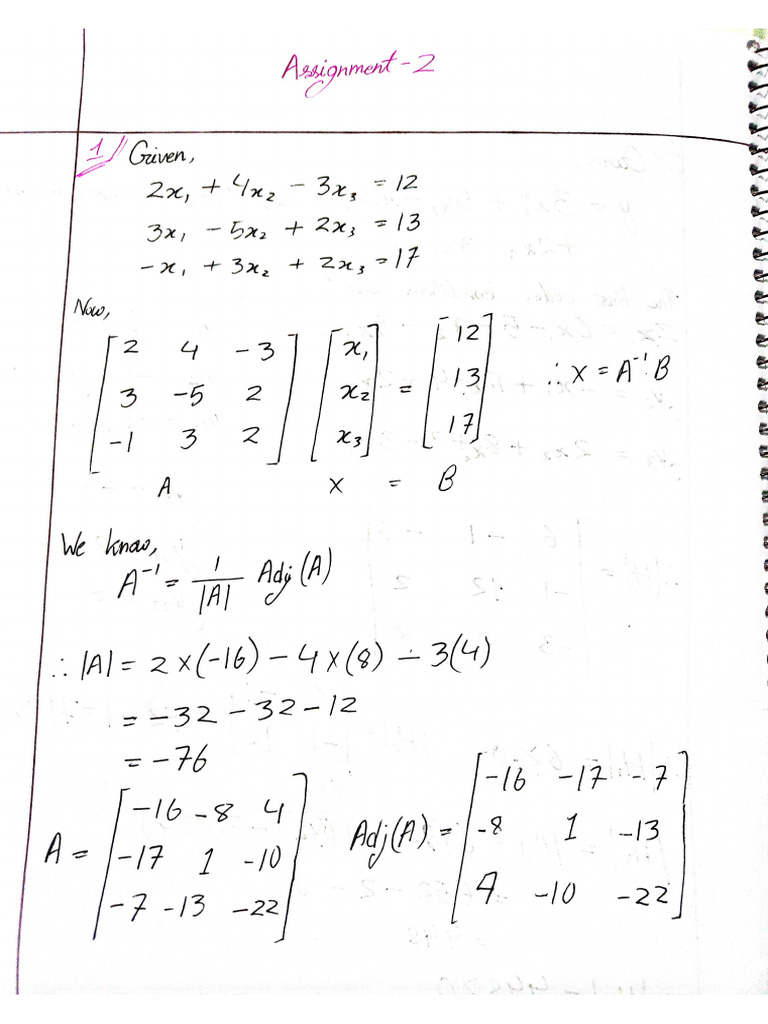 Assignment-2
1 Given,
2x₁ + 4x₂ - 3x₃ = 12
3x₁ - 5x₂ + 2x₃ = 13
-x₁ + 3x₂ + 2x₃ = 17
Now,
[2 4 -3] [x₁] [12]
[3 -5 2] [x₂] = [13] ∴ X = A⁻¹B
[-1 3 2] [x₃] [17]
A X = B
We know,
A⁻¹ = 1/|A| Adj(A)
∴ |A| = 2×(-16) - 4×(8) - 3(4)
= -32 - 32 - 12
= -76
A = [-16 -8 4] [-17 1 -10] [-7 -13 -22]
Adj(A) = [-16 -17 -7] [-8 1 -13] [4 -10 -22]